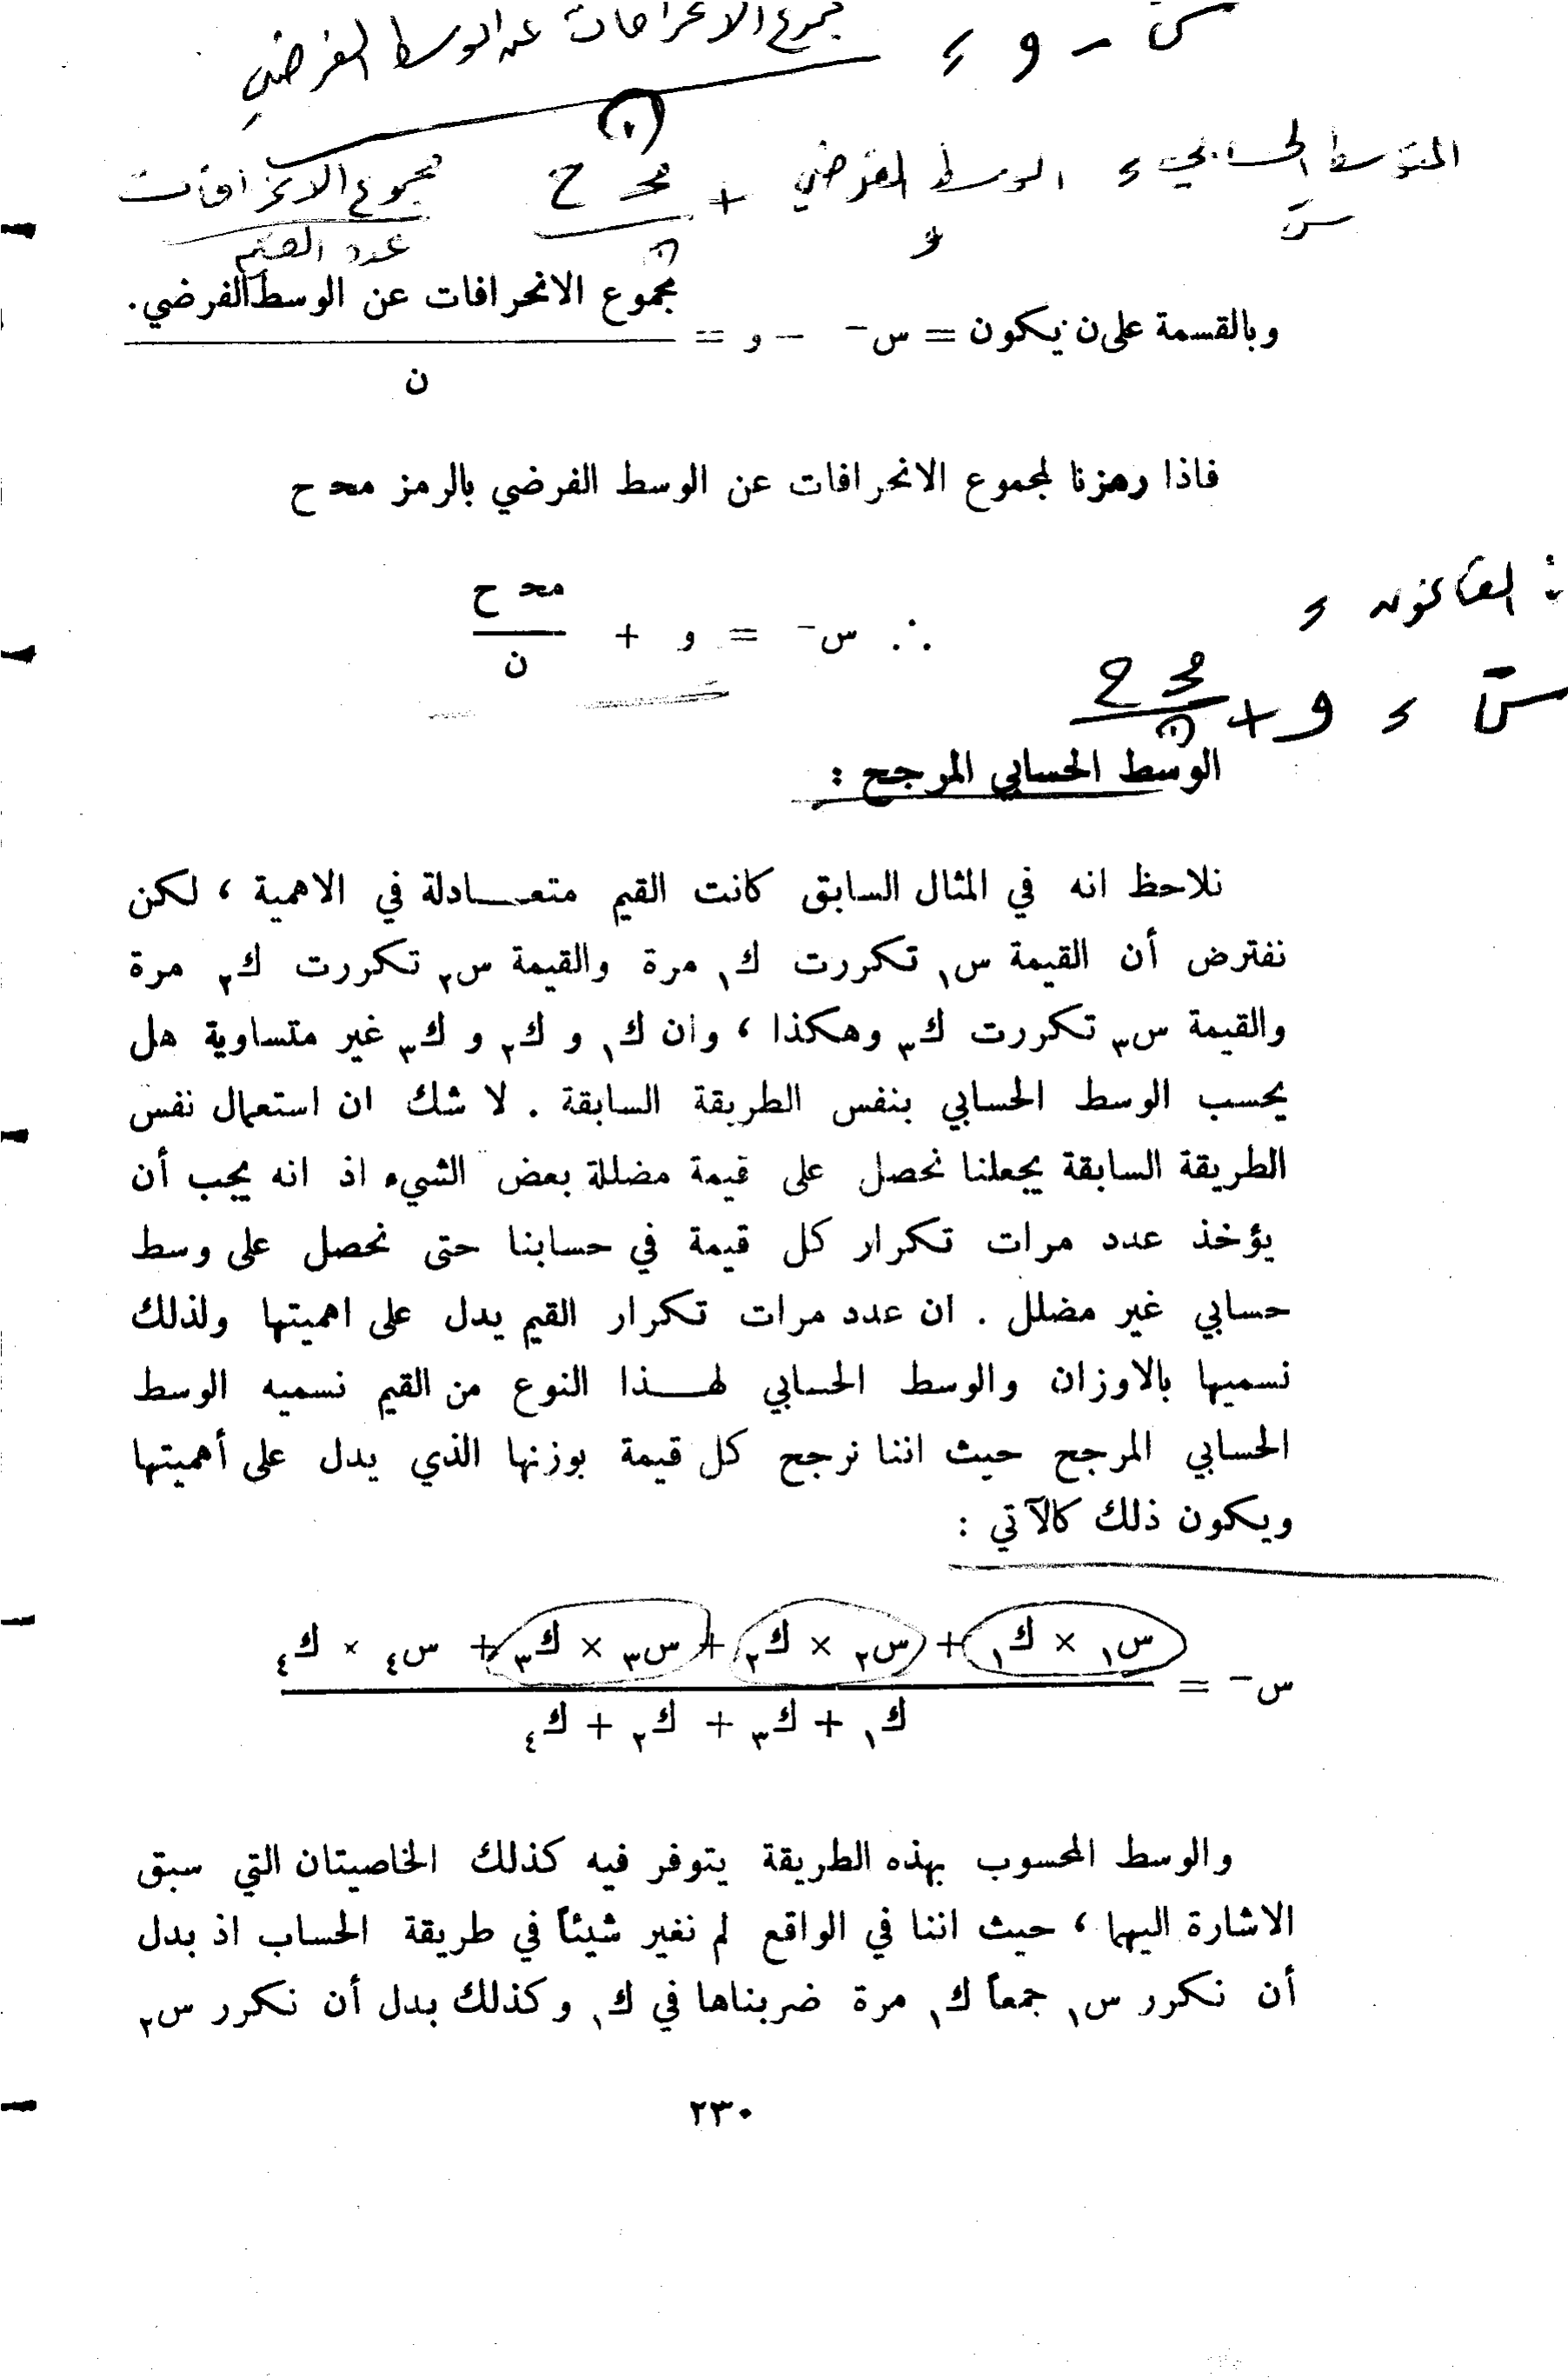 سَ - و = مجموع الانحرافات عن الوسط الفرضي
ن
المتوسط الحسابي = الوسط الفرضي + مح ح مجموع الانحرافات
سَ و ن عدد القيم
وبالقسمة على ن يكون = س– – و = مجموع الانحرافات عن الوسط الفرضي.
ن
فاذا رمزنا لمجموع الانحرافات عن الوسط الفرضي بالرمز مح ح
∴ س– = و + مح ح
ن
∴ القانون =
سَ = و + مح ح
ن
الوسط الحسابي المرجح :
نلاحظ انه في المثال السابق كانت القيم متعـــادلة في الاهمية ، لكن
نفترض أن القيمة س١ تكررت ك١ مرة والقيمة س٢ تكررت ك٢ مرة
والقيمة س٣ تكررت ك٣ وهكذا ، وان ك١ و ك٢ و ك٣ غير متساوية هل
يحسب الوسط الحسابي بنفس الطريقة السابقة . لا شك ان استعمال نفس
الطريقة السابقة يجعلنا نحصل على قيمة مضللة بعض الشيء اذ انه يجب أن
يؤخذ عدد مرات تكرار كل قيمة في حسابنا حتى نحصل على وسط
حسابي غير مضلل . ان عدد مرات تكرار القيم يدل على اهميتها ولذلك
نسميها بالاوزان والوسط الحسابي لهـــذا النوع من القيم نسميه الوسط
الحسابي المرجح حيث اننا نرجح كل قيمة بوزنها الذي يدل على أهميتها
ويكون ذلك كالآتي :
س– = س١ × ك١ + س٢ × ك٢ + س٣ × ك٣ + س٤ × ك٤
ك١ + ك٣ + ك٢ + ك٤
والوسط المحسوب بهذه الطريقة يتوفر فيه كذلك الخاصيتان التي سبق
الاشارة اليهما ، حيث اننا في الواقع لم نغير شيئاً في طريقة الحساب اذ بدل
أن نكرر س١ جمعاً ك١ مرة ضربناها في ك١ وكذلك بدل أن نكرر س٢
٢٣٠